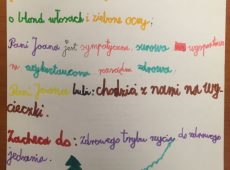 o blond włosach i zielone oczy.
Pani Joanna jest sympatyczna surowa wysportowa
na wykształcona rozsądna zdrowa.
Pani Joanna lubi: chodzić z nami na wy
cieczki.
Zachęca do: zdrowego trybu życia do zdrowego
jedzenia.